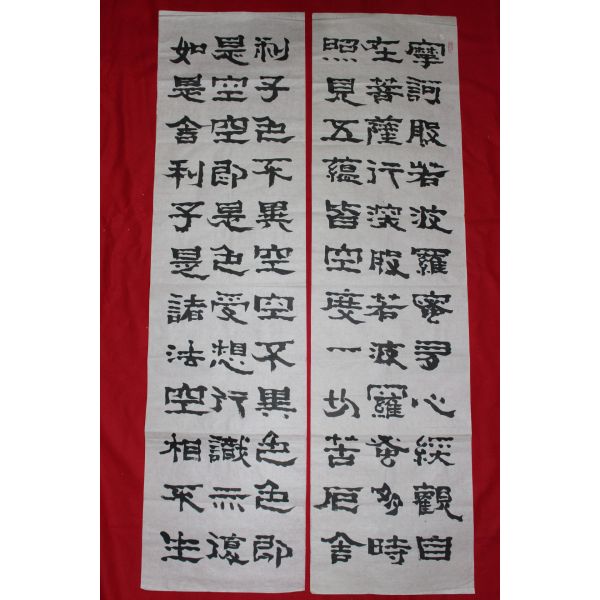 摩訶般若波羅蜜多心經觀自
在菩薩行深般若波羅蜜多時
照見五蘊皆空度一切苦厄舍
利子色不異空空不異色色即
是空空即是色受想行識亦復
如是舍利子是諸法空相不生